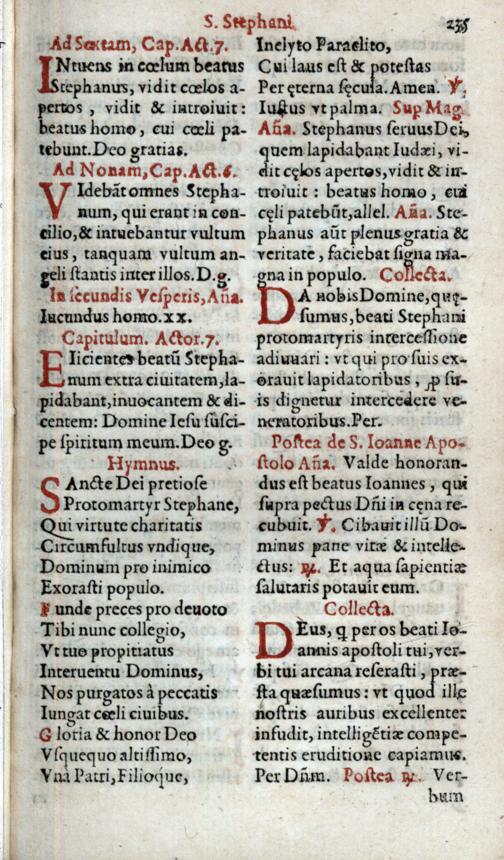 S. Stephani. 235
Ad Sextam, Cap. Act. 7.
INtuens in cœlum beatus
Stephanus, vidit cœlos a-
pertos, vidit & introiuit:
beatus homo, cui cœli pa-
tebunt. Deo gratias.
Ad Nonam, Cap. Act. 6.
VIdebāt omnes Stepha-
num, qui erant in con-
cilio, & intuebantur vultum
eius, tanquam vultum an-
geli stantis inter illos. D. g.
In secundis Vesperis, Aña.
Iucundus homo. xx.
Capitulum. Actor. 7.
EIicientes beatū Stepha-
num extra ciuitatem, la-
pidabant, inuocantem & di-
centem: Domine Iesu susci-
pe spiritum meum. Deo g.
Hymnus.
SAncte Dei pretiose
Protomartyr Stephane,
Qui virtute charitatis
Circūmfultus vndique,
Dominum pro inimico
Exorasti populo.
Funde preces pro deuoto
Tibi nunc collegio,
Vt tuo propitiatus
Interuentu Dominus,
Nos purgatos à peccatis
Iungat cœli ciuibus.
Gloria & honor Deo
Vsquequo altissimo,
Vnà Patri, Filioque,
Inclyto Paraclito,
Cui laus est & potestas
Per ęterna sęcula. Amen. ℣.
Iustus vt palma. Sup Mag.
Aña. Stephanus seruus Dei,
quem lapidabant Iudæi, vi-
dit cęlos apertos, vidit & in-
troiuit: beatus homo, cui
cęli patebūt, allel. Aña. Ste-
phanus aūt plenus gratia &
veritate, faciebat signa ma-
gna in populo. Collecta.
DA nobis Domine, quę-
sumus, beati Stephani
protomartyris intercessione
adiuuari: vt qui pro suis ex-
orauit lapidatoribus, ꝓ su-
is dignetur intercedere ve-
neratoribus. Per.
Postea de S. Ioanne Apo-
stolo Aña. Valde honoran-
dus est beatus Ioannes, qui
supra pectus Dñi in cęna re-
cubuit. ℣. Cibauit illū Do-
minus pane vitæ & intelle-
ctus: ℟. Et aqua sapientiæ
salutaris potauit eum.
Collecta.
DEus, q per os beati Io-
annis apostoli tui, ver-
bi tui arcana reserasti, præ-
sta quæsumus: vt quod ille
nostris auribus excellenter
infudit, intelligētiæ compe-
tentis eruditione capiamus.
Per Dñm. Postea ℟. Ver-
bum